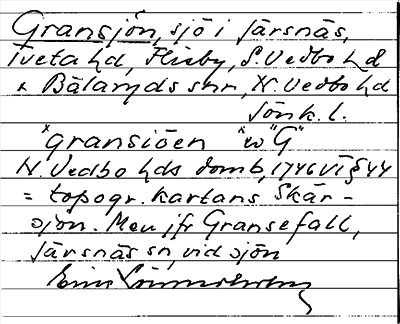 Gransjön, sjö i Järsnäs,
Tveta hd, Flisby, S. Vedbo hd
& Bälaryds snr, N. Vedbo hd
Jönk. l.
"gransiöen "w "G"
N. Vedbo hds domb, 1746 VT § 44
= topogr. kartans Skär-
sjön. Men jfr Gransefall,
Järsnäs sn, vid sjön